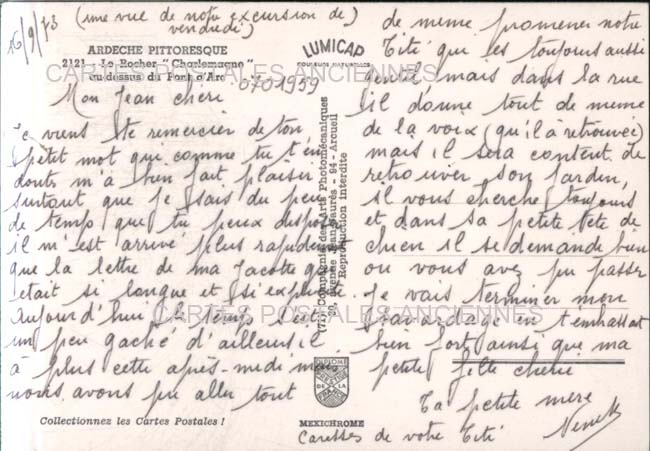 26/9/73 (une vue de notre excursion de
vendredi)
ARDECHE PITTORESQUE
2121 - Le Rocher "Charlemagne"
au-dessus du Pont d'Arc
LUMICAP
COULEURS NATURELLES
0701959
Mon Jean chéri
Je viens te remercier de ton
petit mot qui comme tu t'en
doute m'a bien fait plaisir
surtout que je sais du peu
de temps que tu peux dispos
il m'est arrivé plus rapidement
que la lettre de ma Jacotte qui
était si longue et si explicite
aujourd'hui le temps s'est
un peu gaché d'ailleurs il
à plus cette après-midi mais
nous avons pu aller tout
de meme promener notre
Titi qui est toujours aussi
gentil mais dans la rue
il donne tout de meme
de la voix (qu'il à retrouvée)
mais il sera content de
retrouver son jardin,
il vous cherche toujours
et dans sa petite tête de
chien il se demande bien
ou vous avez pu passer
Je vais terminer mon
bavardage en t'embrassant
bien fort ainsi que ma
petite fille chérie
Ta petite mère
Caresses de votre Titi
(75) Compagnie des Arts Photomécaniques
29 avenue Jean-Jaurès - 94 - Arcueil
Reproduction interdite
DE LA
MEXICHROME
Collectionnez les Cartes Postales !
CARTES POSTALES ANCIENNES
CARTES POSTALES ANCIENNES